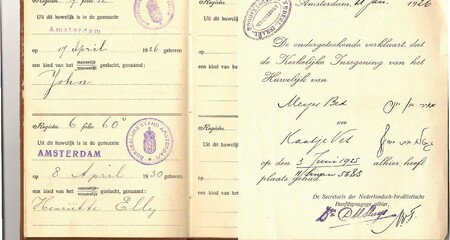 Register 9 folio 12
Uit dit huwelijk is in de gemeente
Amsterdam
op 17 April 1926 geboren
een kind van het mannelijk geslacht, genaamd:
John
Register 6 folio 60
Uit dit huwelijk is in de gemeente
AMSTERDAM
op 8 April 1930 geboren
een kind van het geslacht, genaamd:
Henriëtte Elly
BURGERLIJKE STAND AMSTERDAM
Register
Uit dit huwelijk
op
een kind van het
Register
Uit dit huwelijk
op
een kind van het
Amsterdam, 21 Jan. 1926
De ondergeteekende verklaart, dat
de Kerkelijke Inzegening van het
Huwelijk van
Meijer Bed
en
Kaatje Vet
op den 3 Juni 1925 alhier heeft
5685
plaats gehad.
De Secretaris der Nederlandsch-Israëlietische
Hoofdsynagoge alhier,